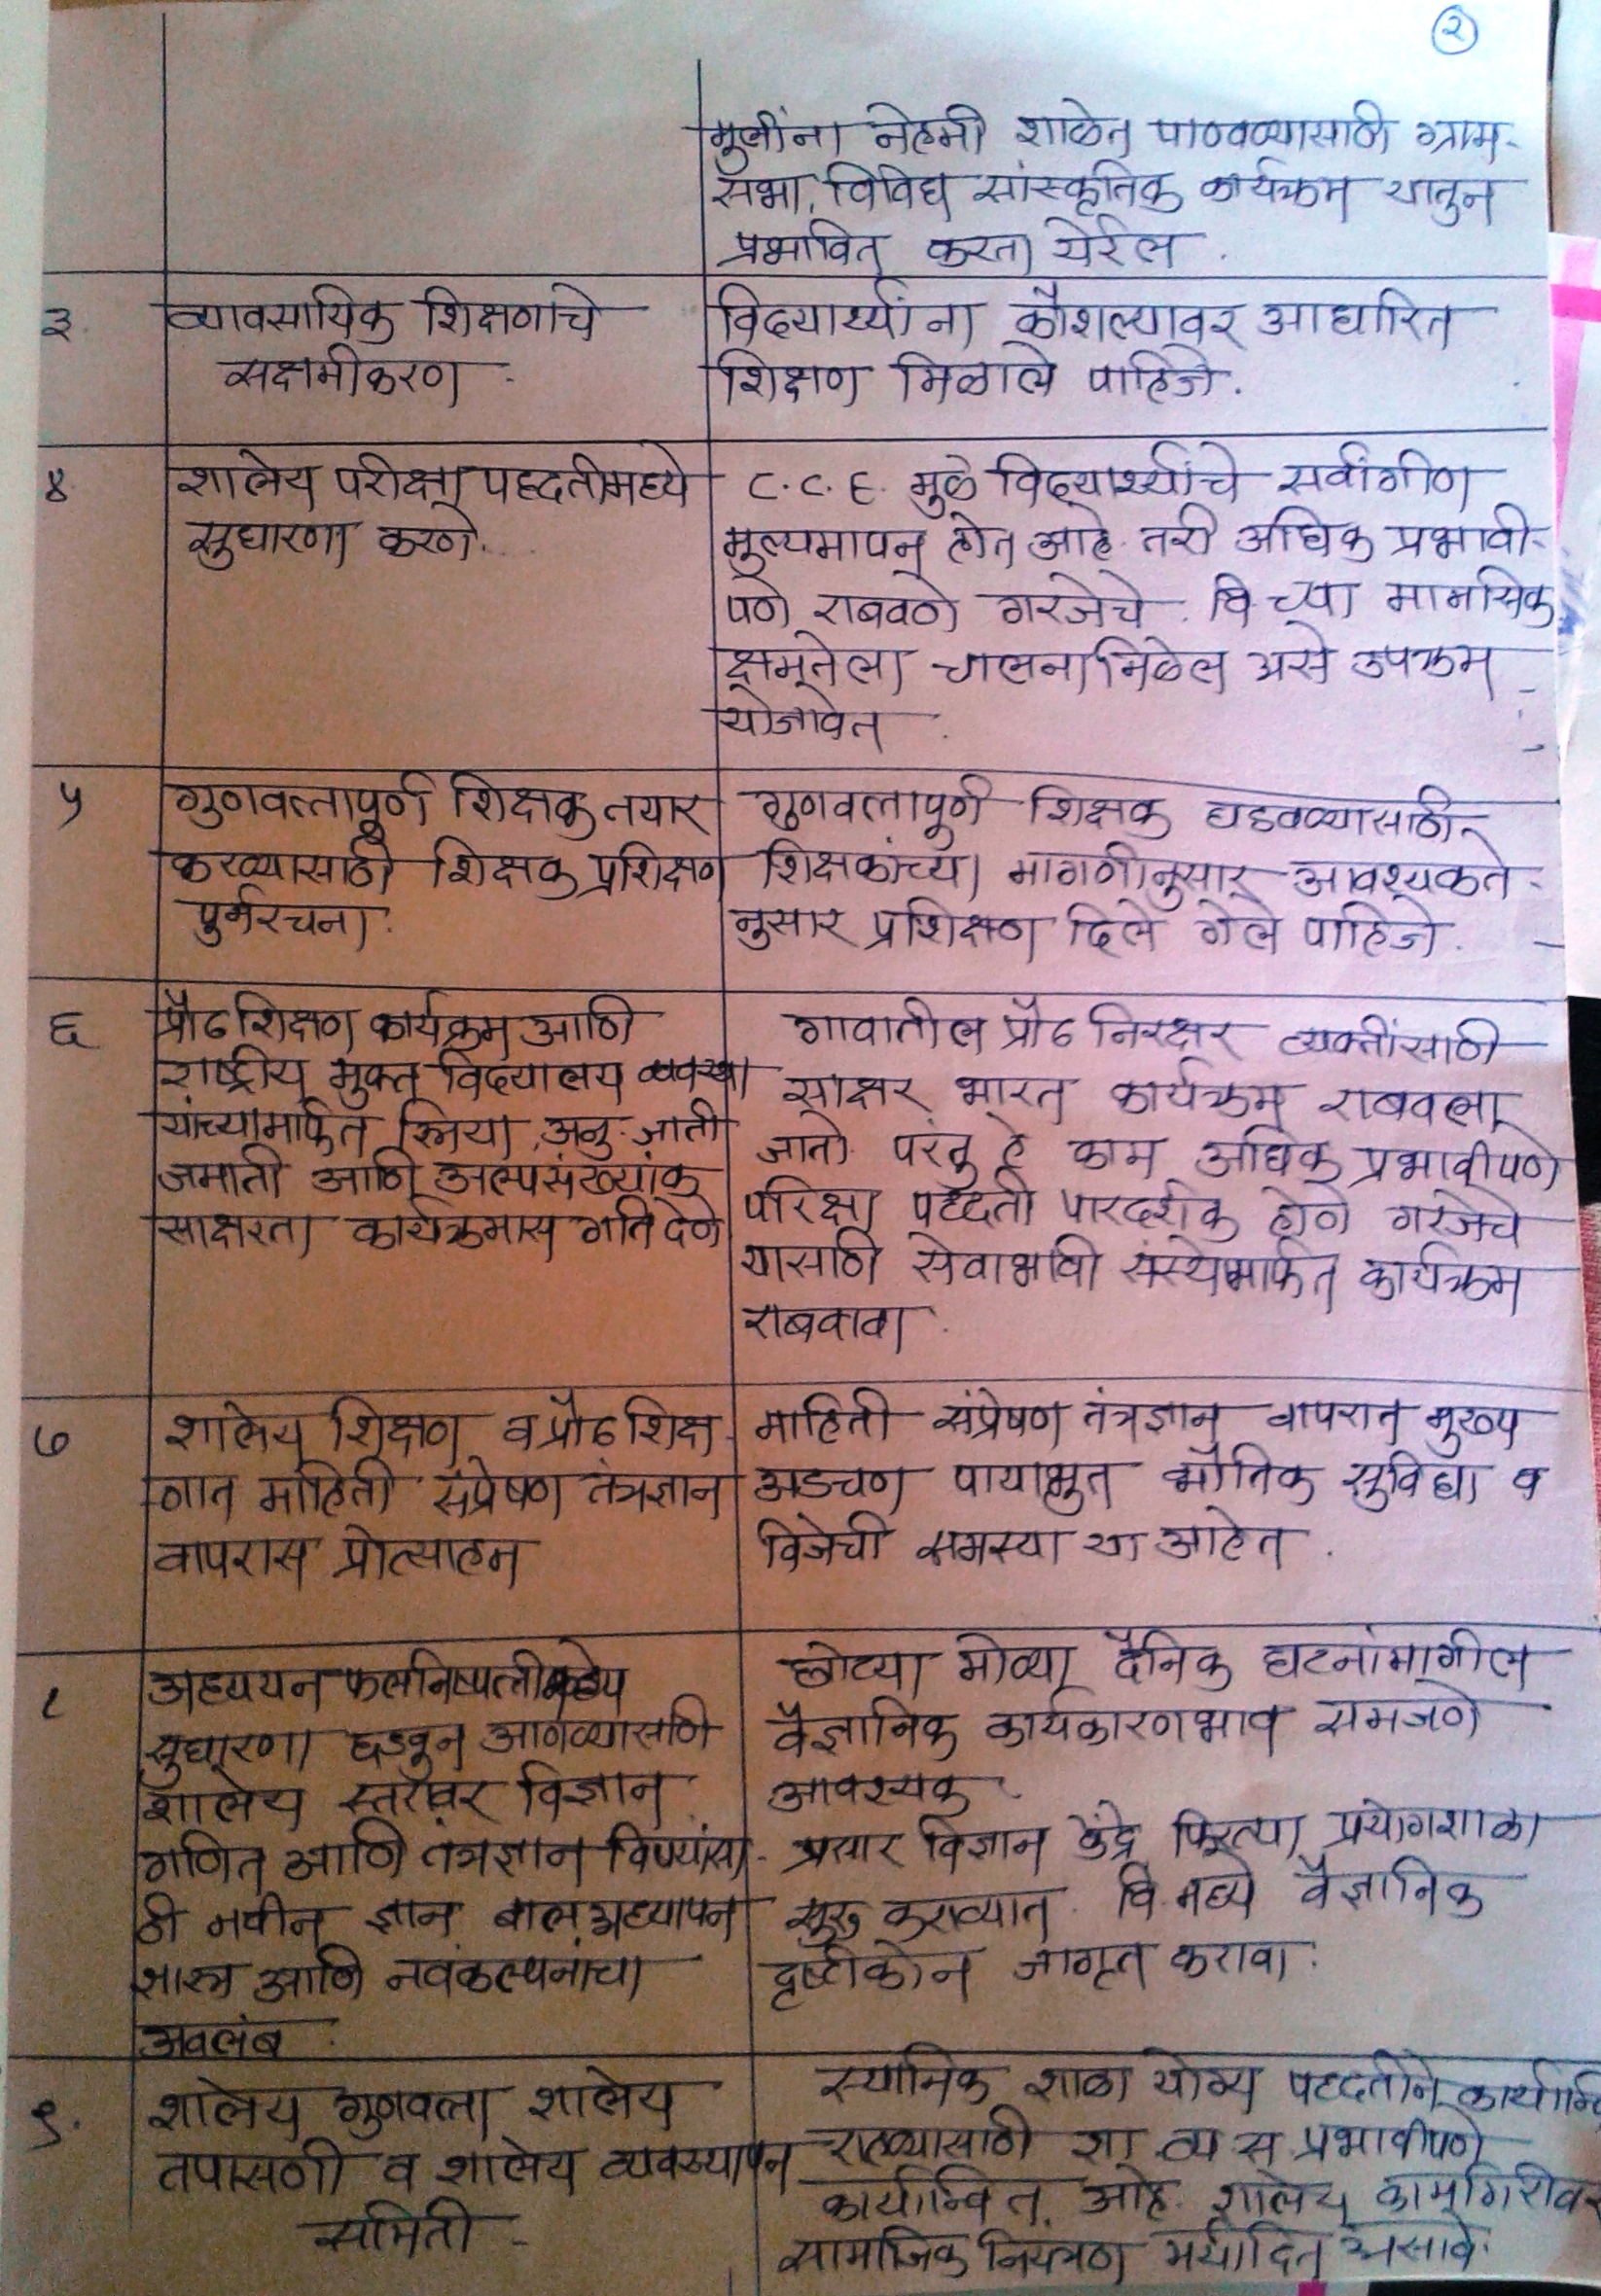 २
मुलींना नेहमी शाळेत पाठवण्यासाठी ग्राम-
सभा, विविध सांस्कृतिक कार्यक्रम यातुन
प्रभावित करता येईल .
३ व्यावसायिक शिक्षणाचे
सक्षमीकरण .
विद्यार्थ्यांना कौशल्यावर आधारित
शिक्षण मिळाले पाहिजे .
४ शालेय परीक्षा पद्धतीमध्ये
सुधारणा करणे .
C.C.E. मुळे विद्यार्थ्यांचे सर्वांगीण
मुल्यमापन होत आहे. तरी अधिक प्रभावी-
पणे राबवणे गरजेचे . वि.च्या मानसिक
क्षमतेला चालना मिळेल असे उपक्रम
योजावेत .
५ गुणवत्तापूर्ण शिक्षक तयार
करण्यासाठी शिक्षक प्रशिक्षण
पुर्नरचना .
गुणवत्तापुर्ण शिक्षक घडवण्यासाठी
शिक्षकांच्या मागणीनुसार आवश्यकते-
नुसार प्रशिक्षण दिले गेले पाहिजे .
६ प्रौढ शिक्षण कार्यक्रम आणि
राष्ट्रीय मुक्त विद्यालय व्यवस्था
यांच्यामार्फत स्त्रिया, अनु. जाती
जमाती आणि अल्पसंख्यांक
साक्षरता कार्यक्रमास गति देणे
गावातील प्रौढ निरक्षर व्यक्तींसाठी
साक्षर भारत कार्यक्रम राबवला
जातो. परंतु हे काम अधिक प्रभावीपणे
परिक्षा पद्धती पारदर्शक होणे गरजेचे
यासाठी सेवाभावी संस्थेमार्फत कार्यक्रम
राबवावा .
७ शालेय शिक्षण व प्रौढ शिक्ष-
णात माहिती संप्रेषण तंत्रज्ञान
वापरास प्रोत्साहन
माहिती संप्रेषण तंत्रज्ञान वापरात मुख्य
अडचण पायाभुत भौतिक सुविधा व
विजेची समस्या या आहेत .
८ अध्ययन फलनिष्पत्तीमध्ये
सुधारणा घडवून आणण्यासाठी
शालेय स्तरावर विज्ञान
गणित आणि तंत्रज्ञान विषयांसा-
ठी नवीन ज्ञान बालअध्यापन
शास्त्र आणि नवकल्पनांचा
अवलंब .
छोट्या मोठ्या दैनिक घटनांमागील
वैज्ञानिक कार्यकारणभाव समजणे
आवश्यक .
प्रसार विज्ञान केंद्रे फिरत्या प्रयोगशाळा
सुरु कराव्यात . वि. मध्ये वैज्ञानिक
दृष्टीकोन जागृत करावा .
९. शालेय गुणवत्ता शालेय
तपासणी व शालेय व्यवस्थापन
समिती -
स्थानिक शाळा योग्य पद्धतीने कार्यान्वि
राहण्यासाठी शा व्य स प्रभावीपणे
कार्यान्वित आहे. शालेय कामगिरीवर
सामाजिक नियंत्रण मर्यादित असावे.